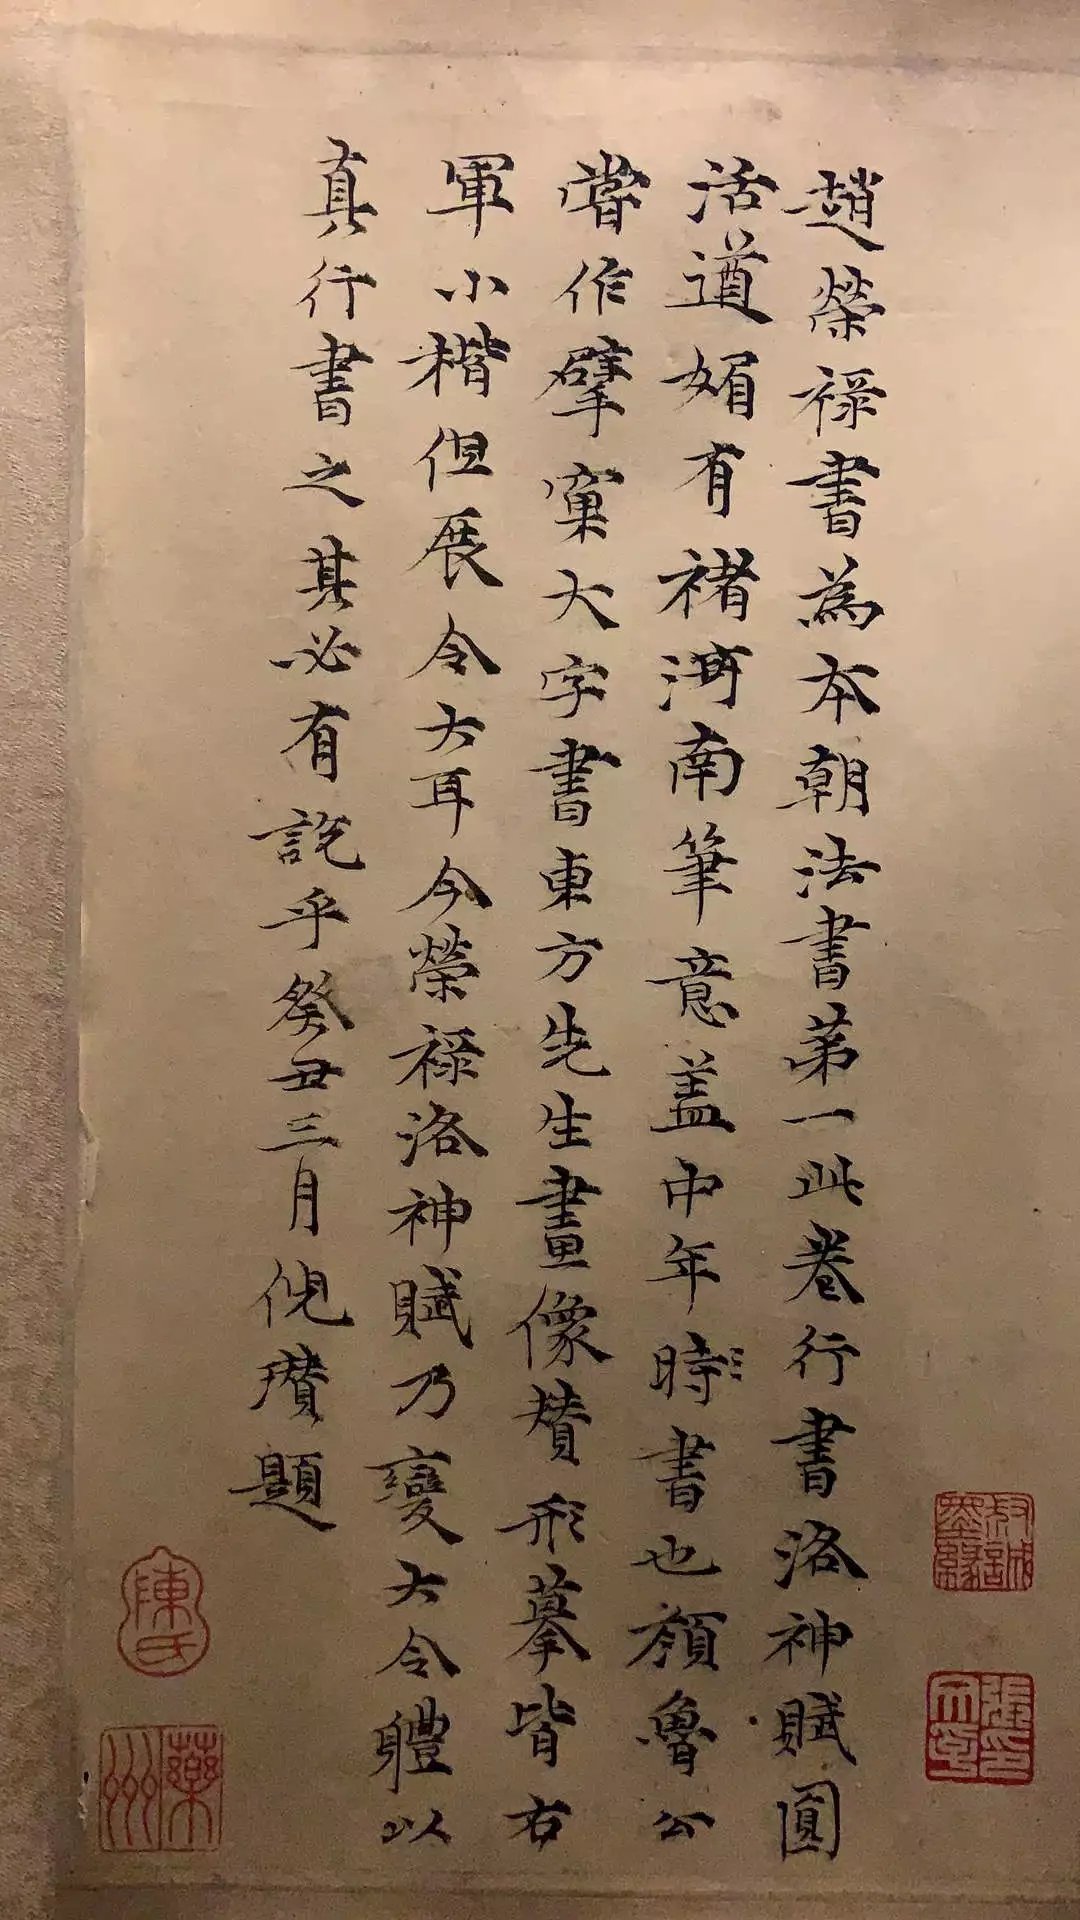 趙榮祿書為本朝法書第一此卷行書洛神賦圓
活遒媚有褚河南筆意盖中年時書也顏魯公
嘗作擘窠大字書東方先生畫像賛形摹皆右
軍小楷但展令大耳今榮祿洛神賦乃變大令軆以
真行書之其必有說乎癸丑三月倪瓚題
陳氏
藥洲